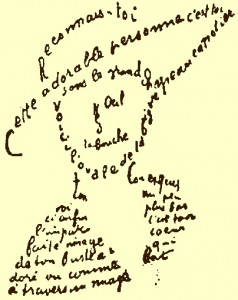 Reconnais-toi
Cette adorable personne c'est toi
sous le grand chapeau canotier
Œil
Nez
la bouche
Voici l'ovale de ta figure
ton
cou
exquis
voi
ci enfin
l'impar
faite image
de ton buste a
doré vu comme
à travers un nuage
un peu
plus bas
c'est ton
coeur
qui
bat